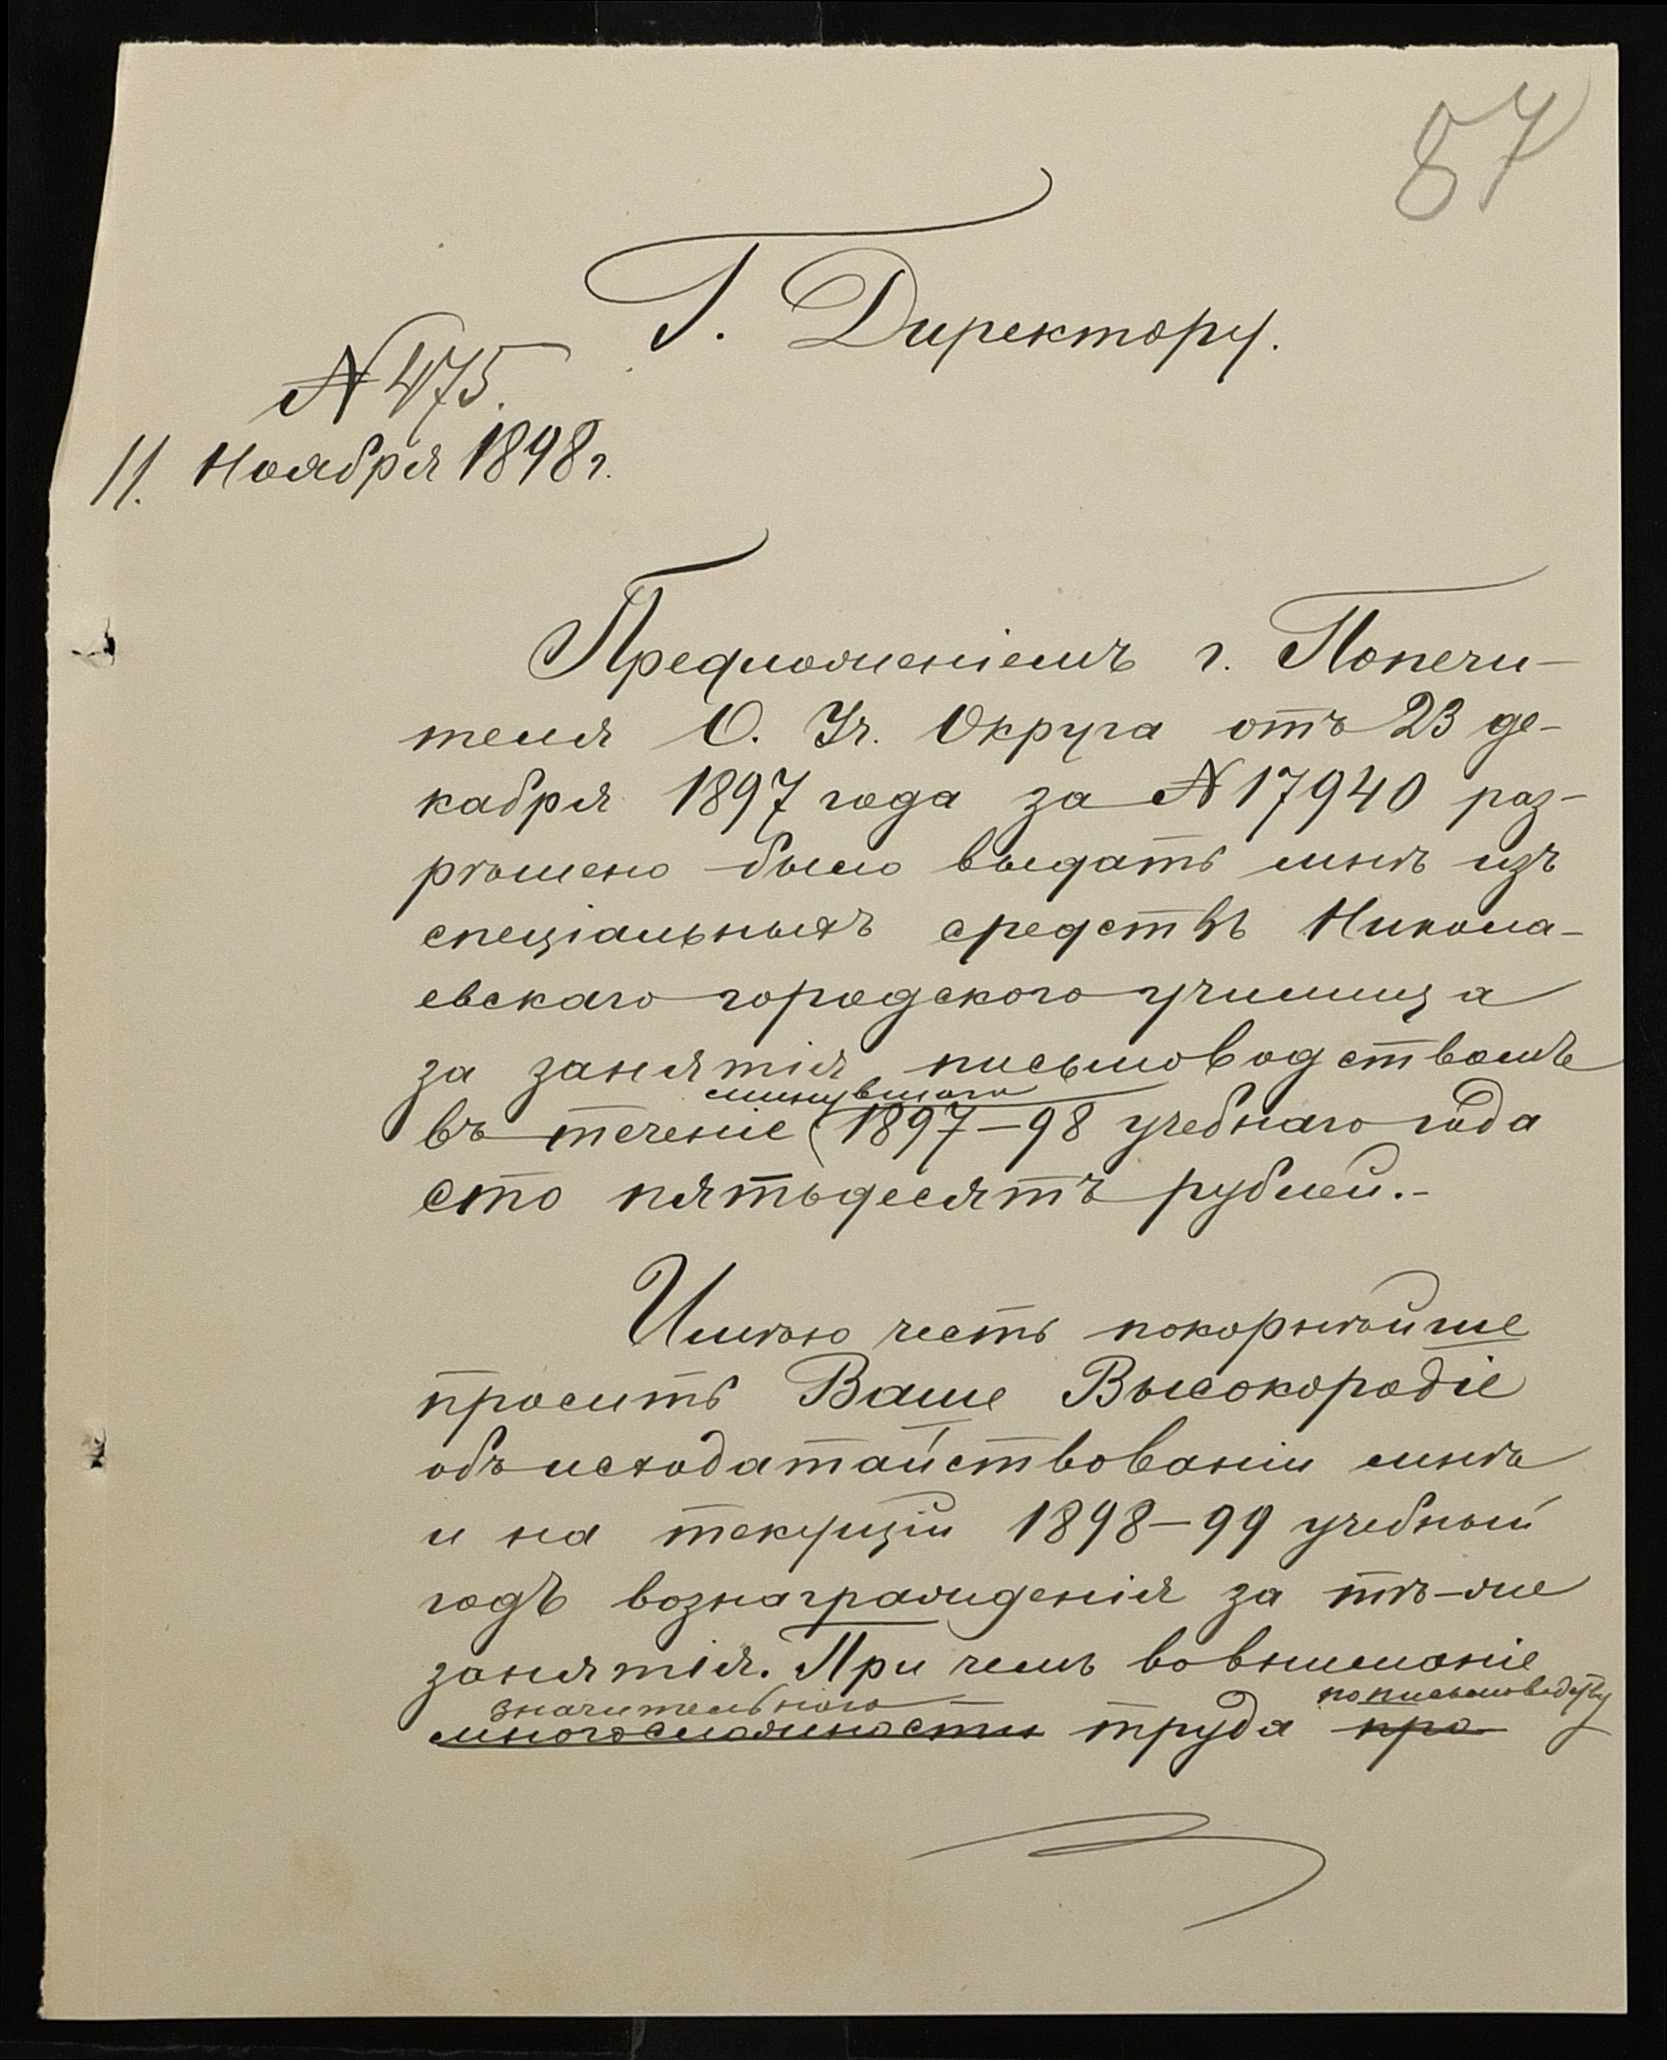 87
Г. Директору.
№ 475.
11. Ноября 1898 г.
Предложеніемъ г. Попечи-
теля О. Уч. Округа отъ 23 де-
кабря 1897 года за № 17940 раз-
рѣшено было выдать мнѣ изъ
спеціальныхъ средствъ Никола-
евскаго городского училища
за занятія письмоводствомъ
минувшаго
въ теченіе 1897–98 учебнаго года
сто пятьдесятъ рублей.-
Имѣю честь покорнѣйше
просить Ваше Высокородіе
объ исходатайствованіи мнѣ
и на текущій 1898–99 учебный
годъ вознагражденія за тѣ-же
занятія. При чемъ во вниманіе
значительнаго по письмоводству
многосложности труда про